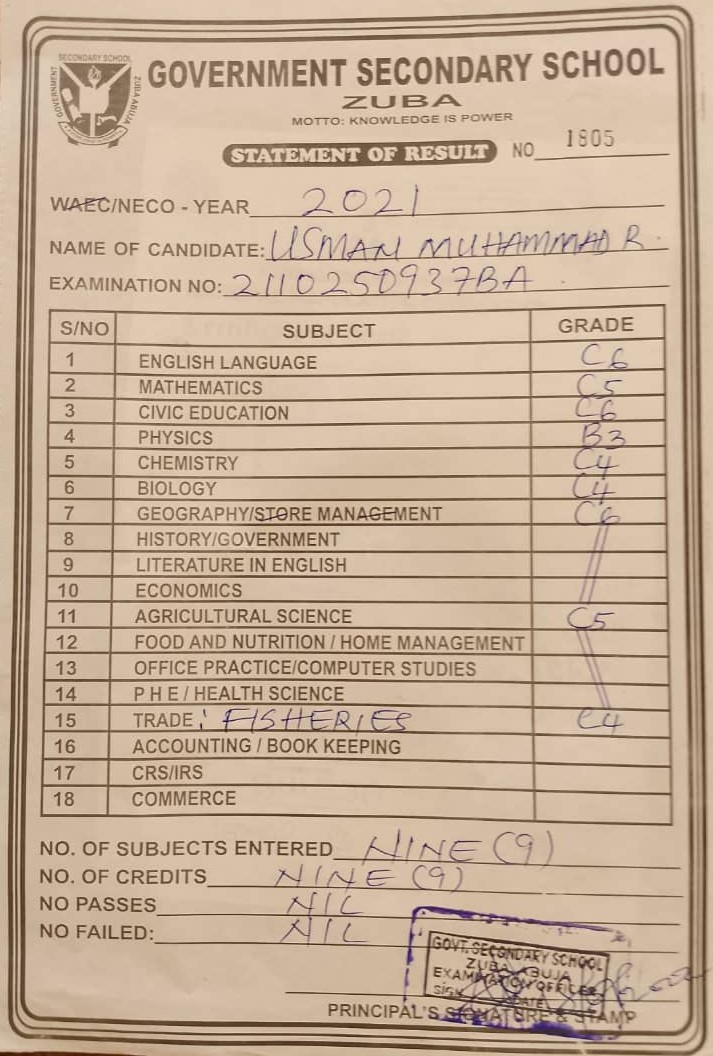 SECONDARY SCHOOL
GOVERNMENT
ZUBA ABUJA
GOVERNMENT SECONDARY SCHOOL
ZUBA
MOTTO: KNOWLEDGE IS POWER
STATEMENT OF RESULT NO 1805
WAEC/NECO - YEAR 2021
NAME OF CANDIDATE: USMAN MUHAMMAD R.
EXAMINATION NO: 2110250937BA
S/NO SUBJECT GRADE
1 ENGLISH LANGUAGE C6
2 MATHEMATICS C5
3 CIVIC EDUCATION C6
4 PHYSICS B3
5 CHEMISTRY C4
6 BIOLOGY C4
7 GEOGRAPHY/STORE MANAGEMENT C6
8 HISTORY/GOVERNMENT
9 LITERATURE IN ENGLISH
10 ECONOMICS
11 AGRICULTURAL SCIENCE C5
12 FOOD AND NUTRITION / HOME MANAGEMENT
13 OFFICE PRACTICE/COMPUTER STUDIES
14 P H E / HEALTH SCIENCE
15 TRADE: FISHERIES C4
16 ACCOUNTING / BOOK KEEPING
17 CRS/IRS
18 COMMERCE
NO. OF SUBJECTS ENTERED NINE (9)
NO. OF CREDITS NINE (9)
NO PASSES NIL
NO FAILED: NIL
GOVT. SECONDARY SCHOOL
ZUBA ABUJA
EXAMINATION OFFICER
SIGN DATE
PRINCIPAL'S SIGNATURE & STAMP